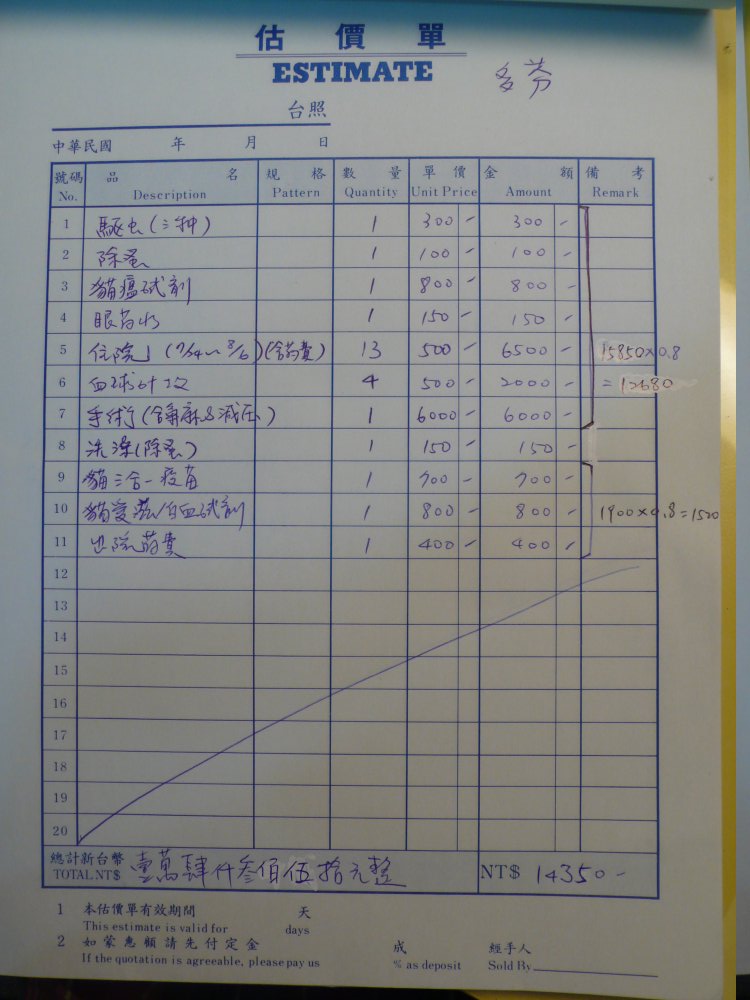 估價單
ESTIMATE
多芬
台照
中華民國 年 月 日
號碼 品名 規格 數量 單價 金額 備考
No. Description Pattern Quantity Unit Price Amount Remark
1 驅虫(三种) 1 300 - 300 -
2 除蚤 1 100 - 100 -
3 貓瘟試劑 1 800 - 800 -
4 眼药水 1 150 - 150 -
5 住院 (7/24~8/6)(含葯費) 13 500 - 6500 - 15850×0.8
6 血球計 4 500 - 2000 - =12680
7 手術(含麻&減压) 1 6000 - 6000 -
8 洗澡(除蚤) 1 150 - 150 -
9 貓三合一疫苗 1 700 - 700 -
10 貓愛滋/白血試劑 1 800 - 800 - 1900×0.8=1520
11 出院葯費 1 400 - 400 -
12
13
14
15
16
17
18
19
20
總計新台幣 壹萬肆仟叁佰伍拾元整
TOTAL NT$ NT$ 14350-
1 本估價單有效期間 天
This estimate is valid for days
2 如蒙惠顧請先付定金 成 經手人
If the quotation is agreeable, please pay us % as deposit Sold By